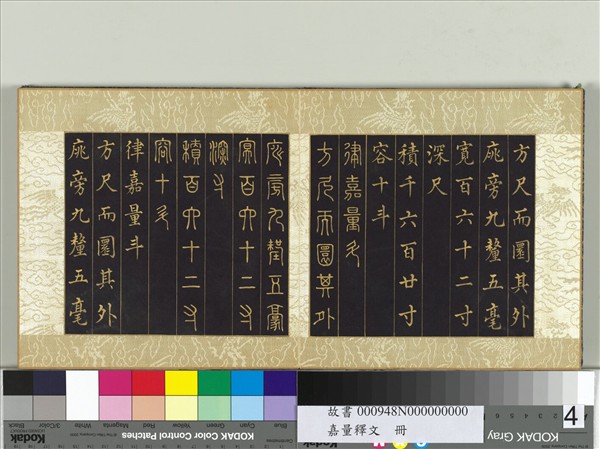 方尺而圜其外
庣旁九釐五毫
寬百六十二寸
深尺
積千六百廿寸
容十斗
律嘉量斗
方尺而圜其外
庣旁九釐五豪
冥百六十二寸
深寸
積百六十二寸
容十升
律嘉量斗
方尺而圜其外
庣旁九釐五毫
故書 000948N000000000
嘉量釋文 冊
4
KODAK Gray
Kodak
KODAK Color Control Patches
Blue Cyan Green Yellow Red Magenta White 3/Color Black